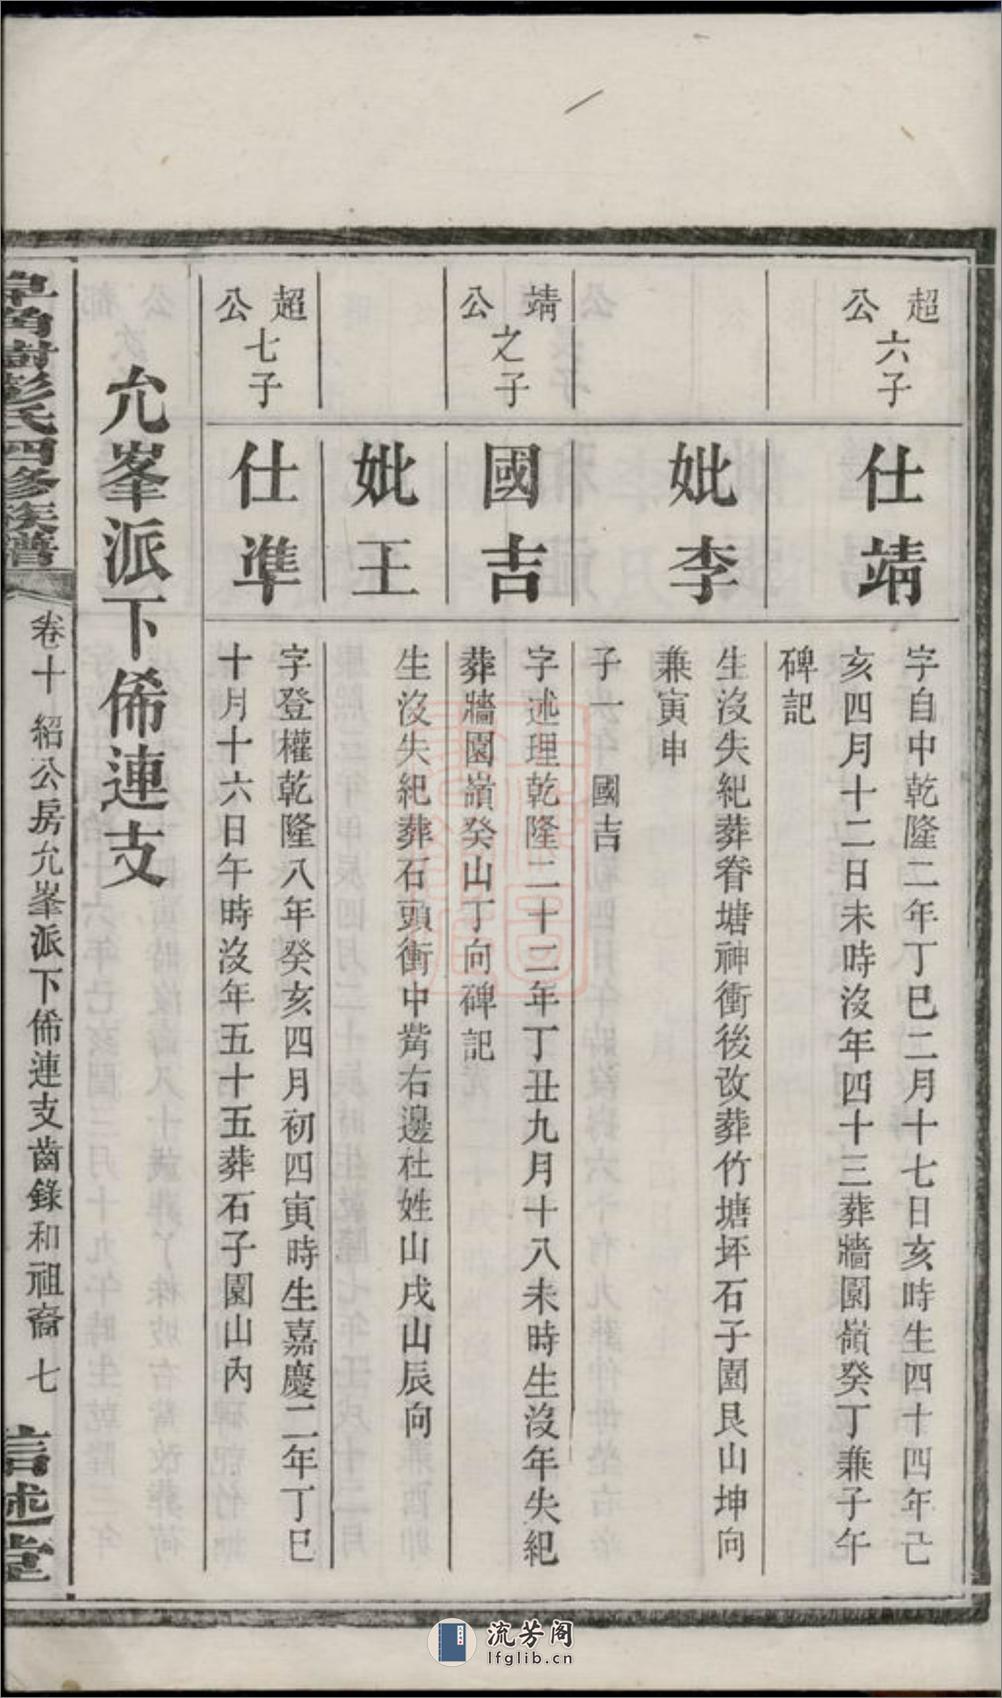 超公六子
仕靖
字自中乾隆二年丁巳二月十七日亥時生四十四年己
亥四月十二日未時沒年四十三葬牆園嶺癸丁兼子午
碑記
妣李
生沒失紀葬眷塘神衝後改葬竹塘坪石子園艮山坤向
兼寅申
子一 國吉
靖公之子
國吉
字述理乾隆二十二年丁丑九月十八未時生沒年失紀
葬牆園嶺癸山丁向碑記
妣王
生沒失紀葬石頭衝中嘴右邊杜姓山戌山辰向
超公七子
仕準
字登權乾隆八年癸亥四月初四寅時生嘉慶二年丁巳
十月十六日午時沒年五十五葬石子園山內
允峯派下俙連支
皂角樹彭氏四修族譜
卷十 紹公房允峯派下俙連支齒錄和祖裔 七
信述堂
流芳阁
lfglib.cn